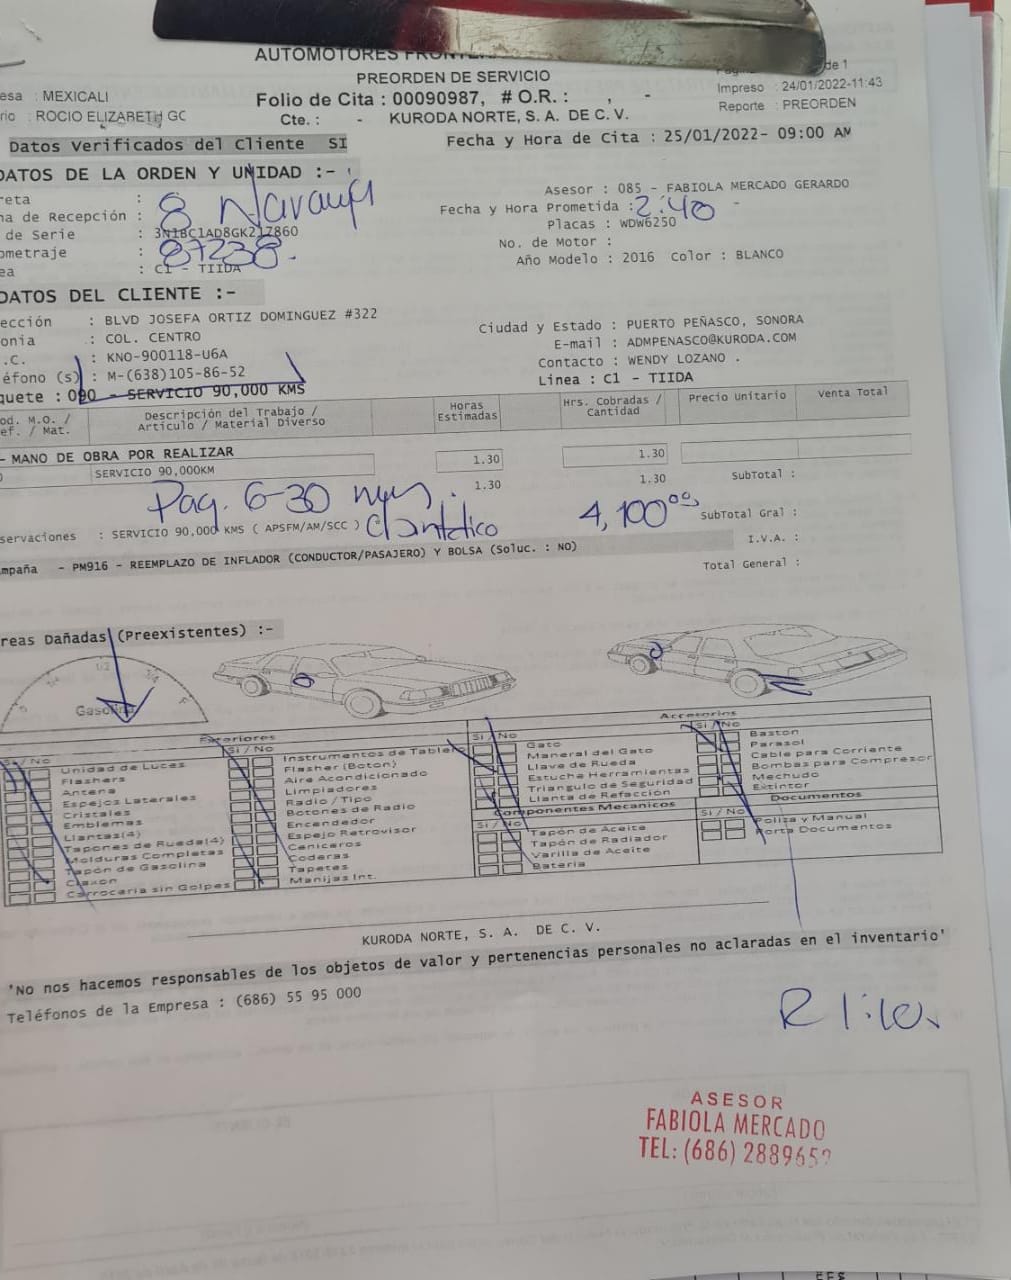 AUTOMOTORES FRONTERA
PREORDEN DE SERVICIO
de 1
esa : MEXICALI
Impreso : 24/01/2022-11:43
Folio de Cita : 00090987, # O.R. : , -
rio : ROCIO ELIZABETH GC
Reporte : PREORDEN
Cte. : - KURODA NORTE, S. A. DE C. V.
Datos Verificados del Cliente SI
Fecha y Hora de Cita : 25/01/2022- 09:00 AM
DATOS DE LA ORDEN Y UNIDAD :-
reta : 8 Naranja
Asesor : 085 - FABIOLA MERCADO GERARDO
ha de Recepción :
Fecha y Hora Prometida : 2:40 -
de Serie : 3N1BC1AD8GK217860
Placas : WDW6250
ometraje : 87238.
No. de Motor :
ea : C1 - TIIDA
Año Modelo : 2016 Color : BLANCO
DATOS DEL CLIENTE :-
ección : BLVD JOSEFA ORTIZ DOMINGUEZ #322
Ciudad y Estado : PUERTO PEÑASCO, SONORA
onia : COL. CENTRO
E-mail : ADMPENASCO@KURODA.COM
.C. : KNO-900118-U6A
Contacto : WENDY LOZANO .
éfono (s) : M-(638)105-86-52
Linea : C1 - TIIDA
quete : 090 - SERVICIO 90,000 KMS
od. M.O. / ef. / Mat.
Descripción del Trabajo / Artículo / Material Diverso
Horas Estimadas
Hrs. Cobradas / Cantidad
Precio Unitario
Venta Total
- MANO DE OBRA POR REALIZAR
SERVICIO 90,000KM 1.30 1.30
1.30 1.30 SubTotal :
Pag. 6-30
4,100.00
SubTotal Gral :
servaciones : SERVICIO 90,000 KMS ( APSFM/AM/SCC )
I.V.A. :
mpaña - PM916 - REEMPLAZO DE INFLADOR (CONDUCTOR/PASAJERO) Y BOLSA (Soluc. : NO)
Total General :
reas Dañadas (Preexistentes) :-
1/4 1/2 3/4 F
Gasolina
Exteriores
Si / No
Unidad de Luces
Flashers
Antena
Espejos Laterales
Cristales
Emblemas
Llantas(4)
Tapones de Rueda(4)
Molduras Completas
Tapón de Gasolina
Claxon
Carrocería sin Golpes
Si / No
Instrumentos de Tablero
Flasher (Boton)
Aire Acondicionado
Limpiadores
Radio / Tipo
Botones de Radio
Encendedor
Espejo Retrovisor
Ceniceros
Coderas
Tapetes
Manijas Int.
Accesorios
Si / No
Gato
Maneral del Gato
Llave de Rueda
Estuche Herramientas
Triangulo de Seguridad
Llanta de Refacción
Si / No
Baston
Parasol
Cable para Corriente
Bombas para Compresor
Mechudo
Extintor
Componentes Mecanicos
Si / No
Tapón de Aceite
Tapón de Radiador
Varilla de Aceite
Bateria
Documentos
Si / No
Poliza y Manual
Porta Documentos
KURODA NORTE, S. A. DE C. V.
'No nos hacemos responsables de los objetos de valor y pertenencias personales no aclaradas en el inventario'
Teléfonos de la Empresa : (686) 55 95 000
R 1:10.
ASESOR
FABIOLA MERCADO
TEL: (686) 288965